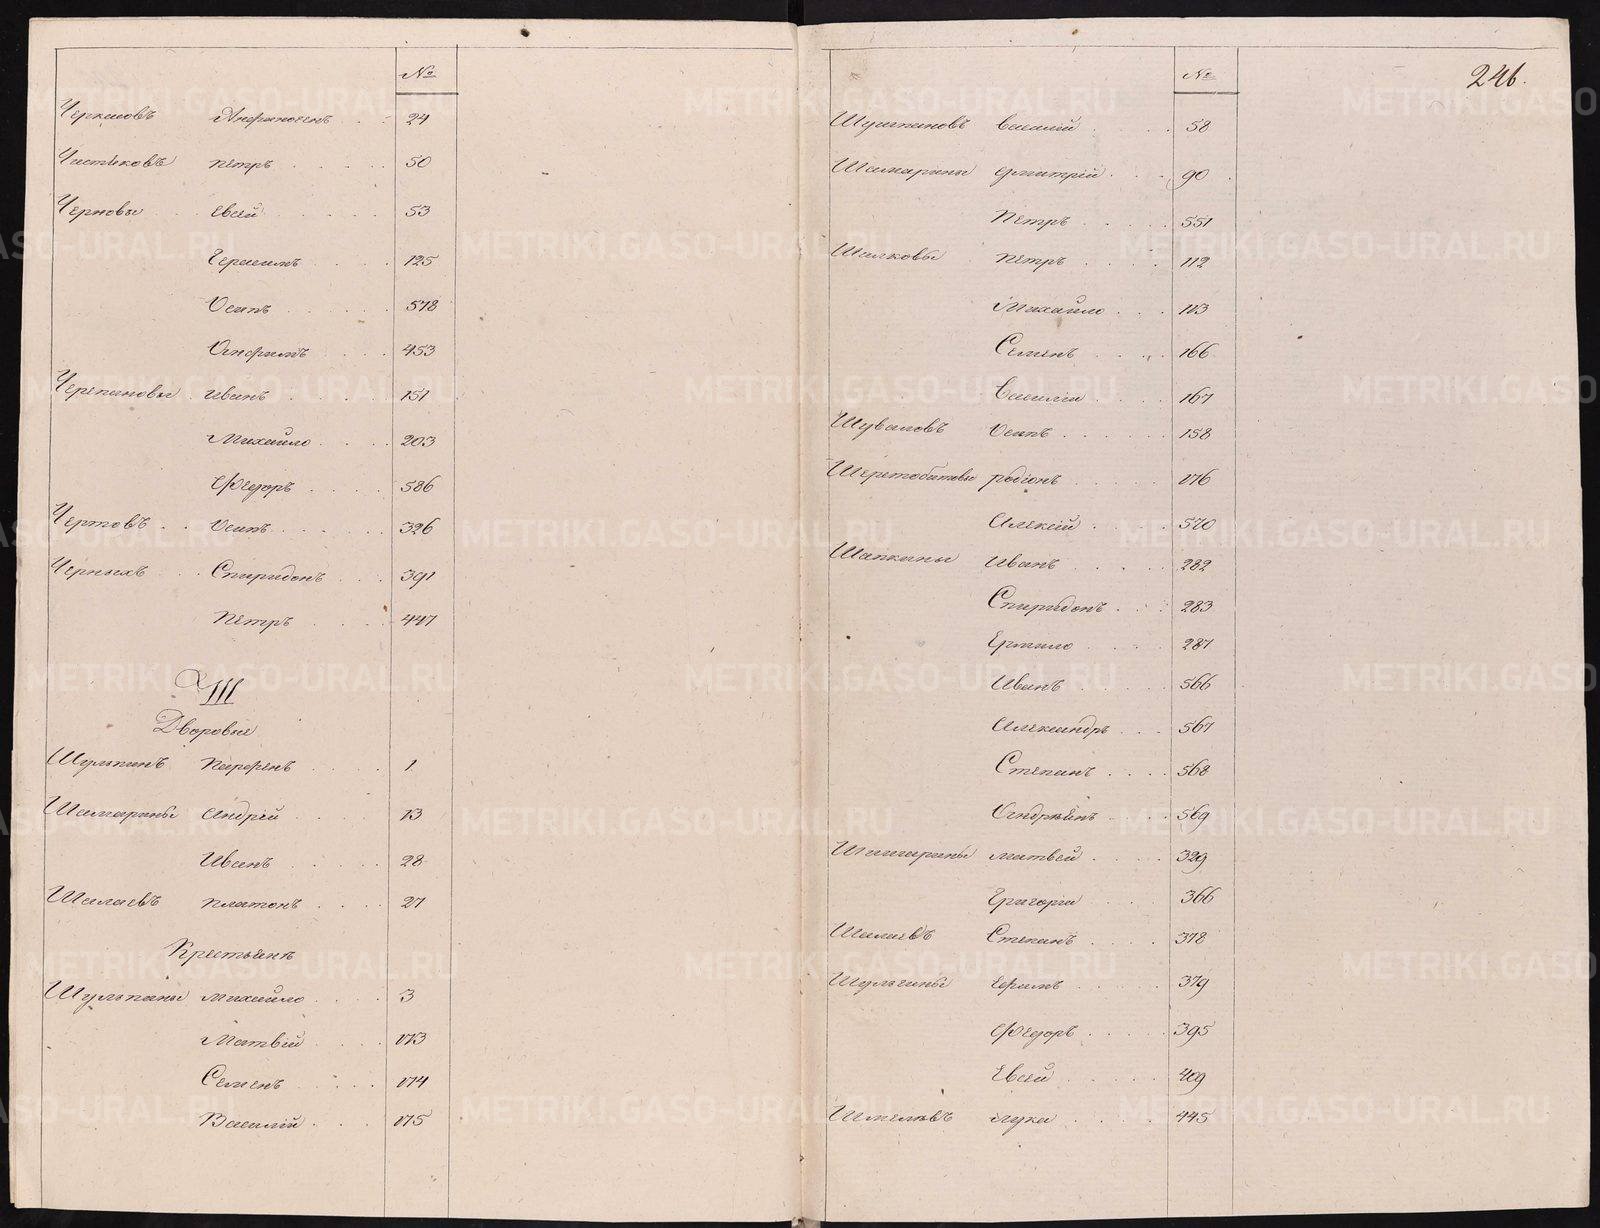 №
Черкасовъ Анфиногенъ 24
Чистяковъ Петръ 50
Черновы Евсей 53
Герасимъ 125
Осипъ 578
Онфимъ 453
Черепановы Иванъ 151
Михайло 203
Федоръ 586
Чертовъ Осипъ 326
Черныхъ Спиридонъ 391
Петръ 447
Ш
Дворовые
Шульпинъ Парфенъ 1
Шамарины Андрей 13
Иванъ 28
Шалаевъ Платонъ 27
Крестьянъ
Шульпины Михайло 3
Матвей 173
Семенъ 174
Василій 175
№
246.
Василій 58
Шамарины Дмитрій 90
Петръ 551
Шалковы Петръ 112
Михайло 113
Семенъ 166
Василій 167
Шуваловъ Осипъ 158
Родіонъ 176
Алексей 570
Шапкины Иванъ 282
Спиридонъ 283
Ермило 287
Иванъ 566
Александръ 567
Степанъ 568
Андреянъ 569
Матвей 329
Григорій 366
Шалаевъ Степанъ 378
Шульгины Ефимъ 379
Федоръ 395
Евсей 409
Шмелевъ Лука 445
METRIKI.GASO-URAL.RU